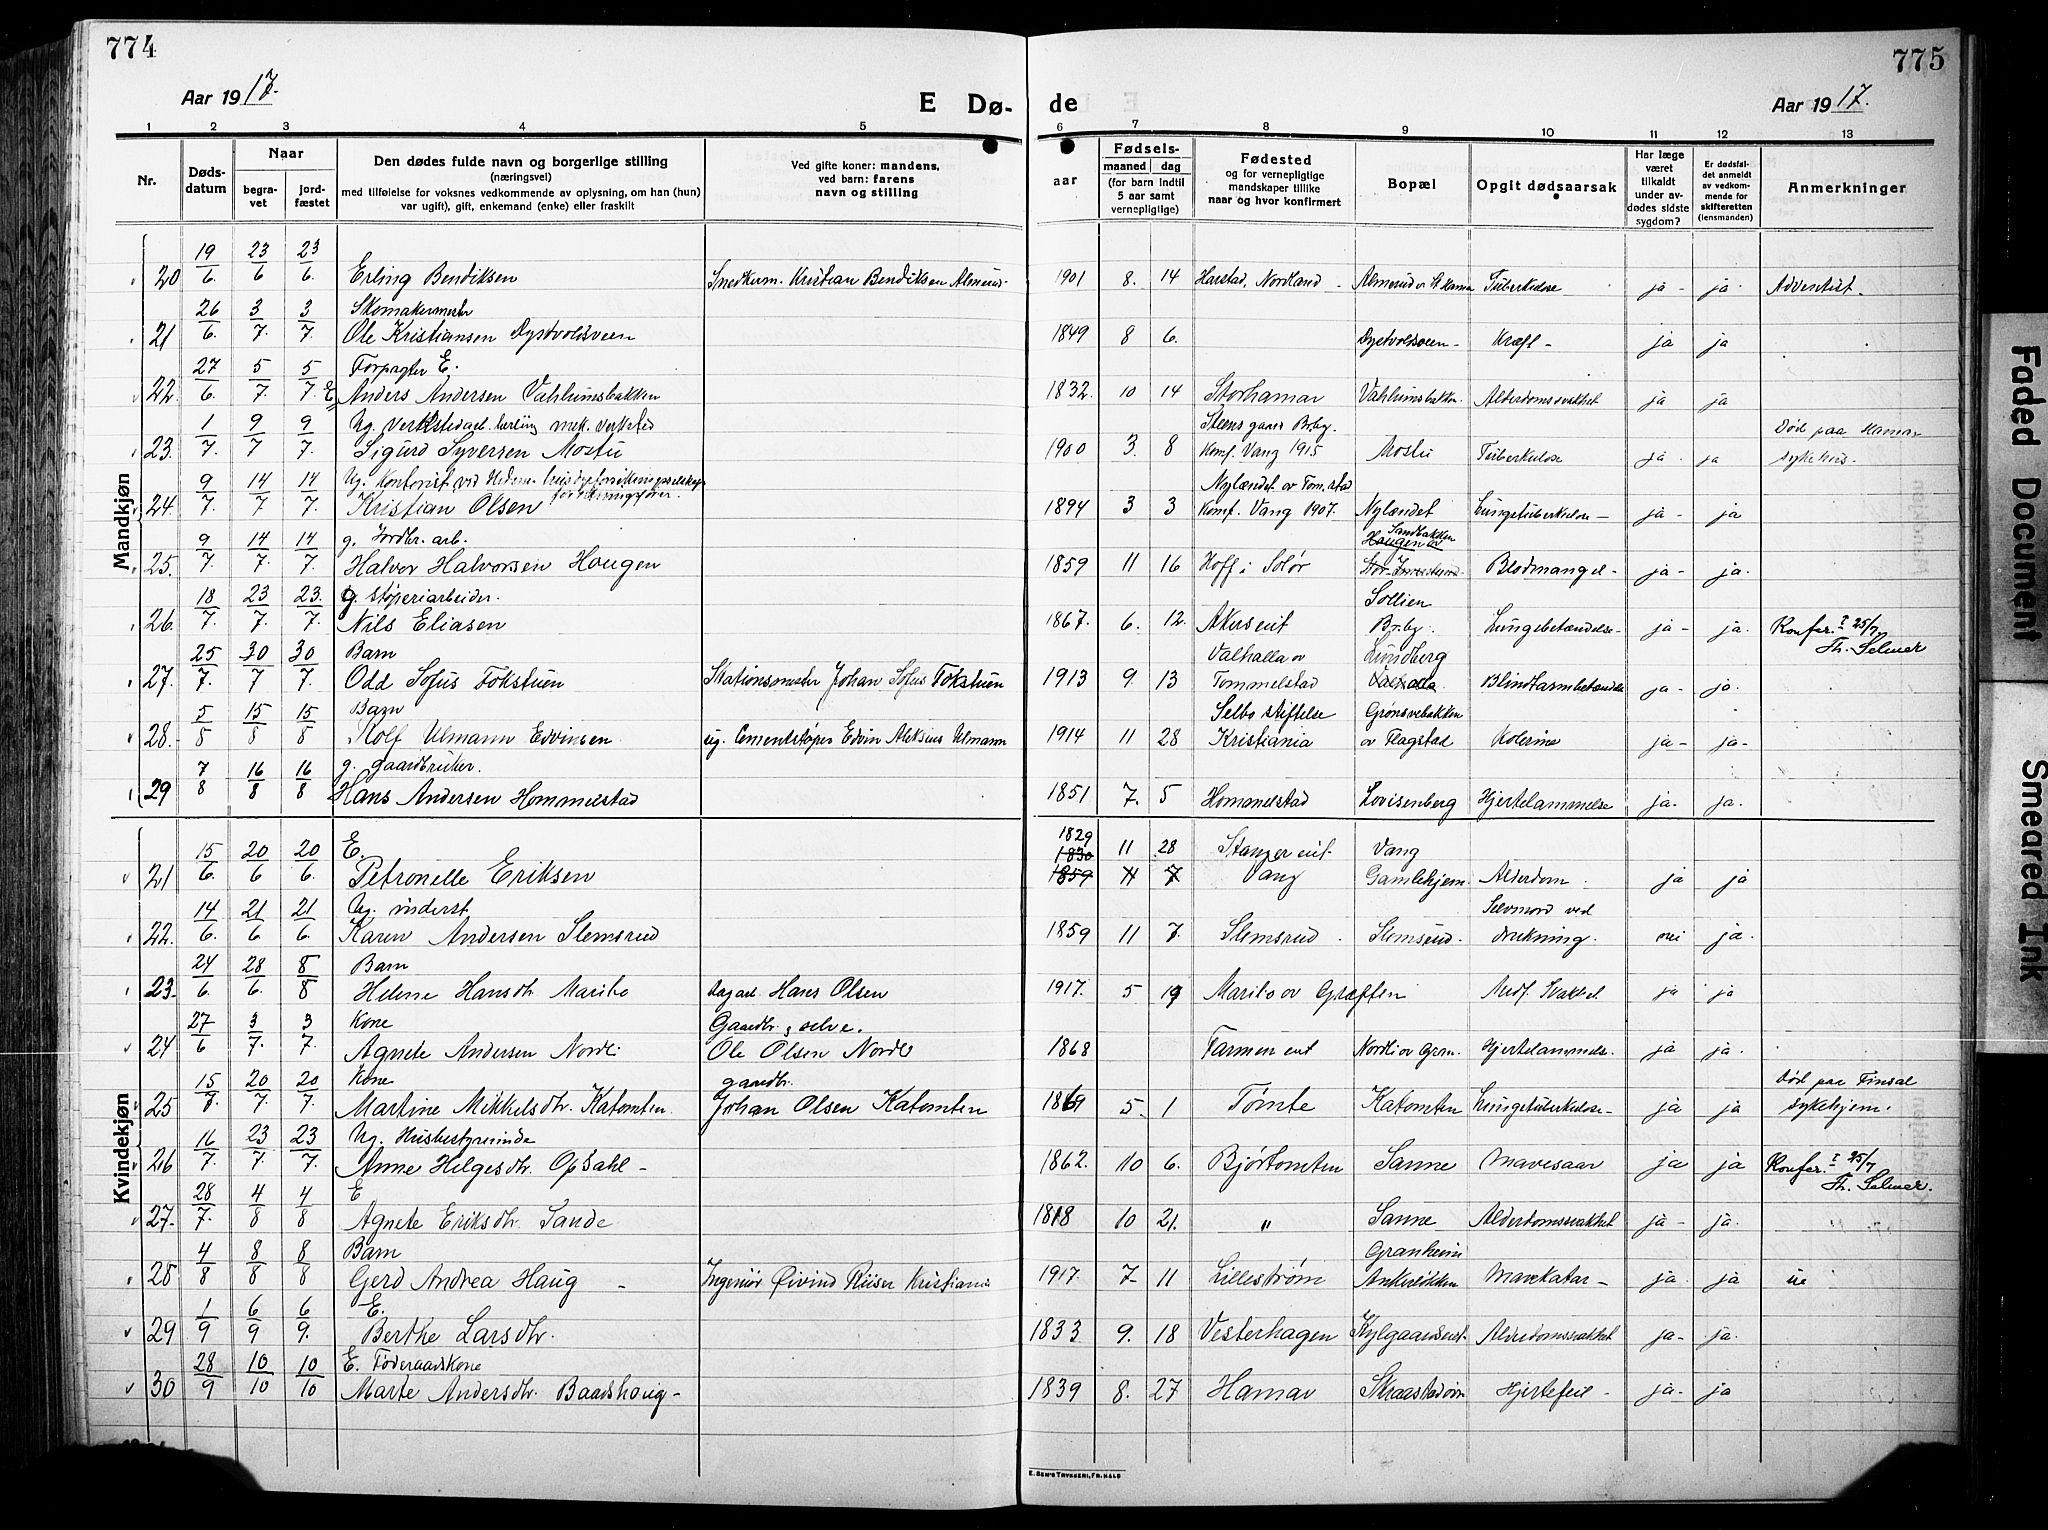 774
775
Aar 1917.
E Dø-
de
Aar 1917.
1 2 3 4 5 6 7 8 9 10 11 12 13
Nr.
Døds-
datum
Naar
begra-
vet
jord-
fæstet
Den dødes fulde navn og borgerlige stilling
(næringsvei)
med tilføielse for voksnes vedkommende av oplysning, om han (hun)
var ugift), gift, enkemand (enke) eller fraskilt
Ved gifte koner: mandens,
ved barn: farens
navn og stilling
aar
Fødsels-
maaned dag
(for barn indtil
5 aar samt
vernepligtige)
Fødested
og for vernepligtige
mandskaper tillike
naar og hvor konfirmert
Bopæl
Opgit dødsaarsak
Har læge
været
tilkaldt
under av-
dødes sidste
sygdom?
Er dødsfal-
det anmeldt
av vedkom-
mende for
skifteretten
(lensmanden)
Anmerkninger
Mandkjøn
20 19/6. 23/6 23/6. Erling Bendiksen Snedkerm. Kristian Bendiksen Almerud- 1901 8. 14 Harstad, Nordland Almerud Tuberkulose ja - ja Adventist.
Skomakermester
21 26/6. 3/7. 3/7. Ole Kristiansen Dystvoldsveen 1849 8 6. Dystvoldsveen - Kræft - ja ja
Forpagter E.
22. 27/6. 5/7. 5/7. Anders Andersen Vahlumsbakken 1832. 10 14 Storhamar Vahlumsbakken. Alderdomssvakhet ja ja
Ug. Verkstedarb. lærling mek. verksted Steensgaard Brby. Død paa Hamar
23. 1/7. 9/7 9/7. Sigurd Syversen Mostu 1900 3. 8 Konf. Vang 1915 Mostu Tuberkulose ja. ja sykehus.
Nylændet av Tom.stad
24. 9/7. 14/7 14/7. Kristian Olsen 1894 3 3 Konf. Vang 1907. Nylændet Lungetuberkulose - ja - ja
g. Jordbr. arb. Sandbakken
Haugen av
25. 9/7. 14/7. 14/7. Halvor Halvorsen Haugen 1859 11 16 Hoff i Solør Blodmangel - ja - ja.
g. støperiarbeider. Sollien
26. 18/7. 23/7. 23/7. Nils Eliasen 1867. 6. 12. Akerseiet Brby. Lungebetændelse - ja - ja. Konfer. 25/7
Th. Selmer
Barn Valhalla av Lundberg
27. 25/7. 30/7 30/7. Odd Sofus Fokstuen Stationsmester Johan Sofus Fokstuen 1913 9. 13 Tommelstad Valhalla Blindtarmbetændelse ja - ja.
Barn Selbo stiftelse Grønsvebakken
28. 5/8 15/8 15/8 Rolf Ulmann Edvinsen ug. Cementstøper Edvin Aleksius Ulmann 1914 11 28 Kristiania av Flagstad Kolerine ja - ja -
g. gaardbruker.
29 7/8 16/8 16/8 Hans Andersen Hommelstad 1851 7. 5 Hommelstad Lovisenberg Hjertelammelse ja - ja.
Kvindekjøn
E. 1829 1830 11 28 Stangereiet Vang
21 15/6. 20/6 20/6. Petronelle Eriksen 1859 11 7 Vang Gamlehjem. Alderdom ja ja
Ug. inderst Selvmord ved
22. 14/6. 21/6 21/6. Karen Andersen Slemsrud 1859 11 7. Slemsrud Slemsrud. drukning. nei ja.
Barn
23. 24/6. 28/6. 8/8 Helene Hansdtr. Marilo dagarb. Hans Olsen 1917. 5 19 Marilo av Græften Medf. Svakhet ja ja
Kone Gaardbr., selve.
24 27/6 3/7. 3/7. Agnete Andersen Nordli Ole Olsen Nordli 1868 Farmen eiet Nordli av Grøn. Hjertelammelse. ja ja
Kone gaardbr. Død paa Finsal
25 15/7. 20/7. 20/7. Martine Mikkelsdtr. Katomten. Johan Olsen Katomten 1869 5. 1 Tømte Katomten Lungetuberkulose - ja ja sykehjem.
Ug. Husbestyrerinde
26 16/7. 23/7. 23/7. Anne Helgesdtr. Opsahl - 1862. 10 6. Bjørtomten Sanne Mavesaar ja ja Konfer. 25/7
Th. Selmer.
E
27. 28/7. 4/8 4/8 Agnete Eriksdtr. Sande 1818 10 21. " Sanne Alderdomssvakhet ja - ja.
Barn Granheim
28 4/8 8/8 8/8 Gerd Andrea Haug - Ingeniør Øivind Riiser Kristiania 1917. 7 - 11 Lillestrøm Ankerløkken Mavekatar - ja. ja ue
E.
29 1/9 6/9 6/9. Berthe Larsdtr. 1833 9. 18 Vesterhagen Kylgaardseiet Alderdomssvakhet ja - ja.
E. Føderaadskone
30 28/9 10/10 10/10 Marte Andersdtr. Baadshaug - 1839 8. 27 Hamar Skaarstadvn Hjertefeil - ja - ja
E. SEM'S TRYKKERI, FR.HALD
Faded Document
Smeared Ink